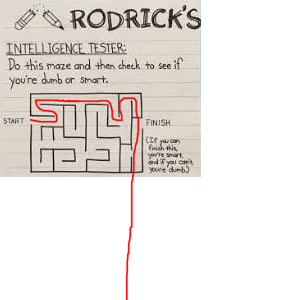 RODRICK'S
INTELLIGENCE TESTER:
Do this maze and then check to see if
you're dumb or smart.
START
FINISH
(If you can
finish this,
you're smart,
and if you can't,
you're dumb.)